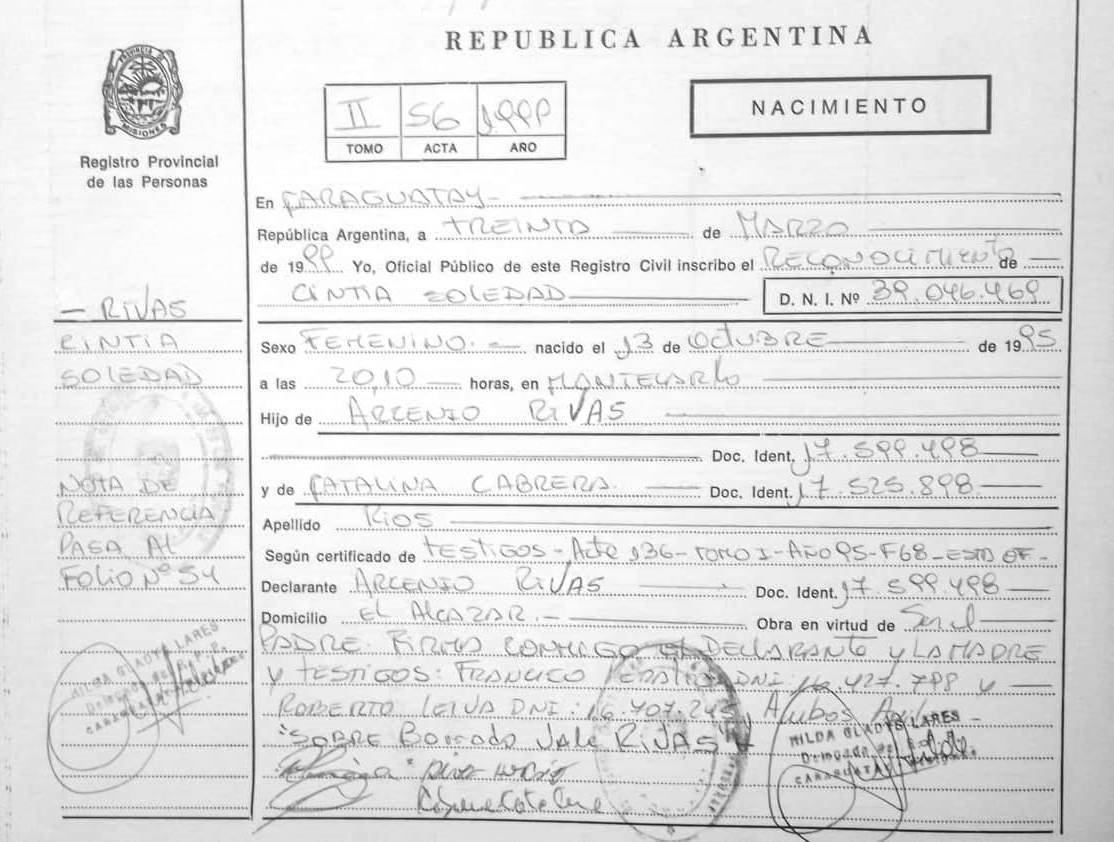 REPUBLICA ARGENTINA
PROVINCIA
MISIONES
Registro Provincial
de las Personas
II 56 1999
TOMO ACTA AÑO
NACIMIENTO
En CARAGUATAY
República Argentina, a TREINTA de MARZO
de 1999 Yo, Oficial Público de este Registro Civil inscribo el RECONOCIMIENTO de
CINTIA SOLEDAD D. N. I. Nº 39.046.469
RIVAS
CINTIA
SOLEDAD
NOTA DE
REFERENCIA
PASA AL
FOLIO Nº 54
Sexo FEMENINO. nacido el 13 de OCTUBRE de 1995
a las 20,10 horas, en MONTECARLO
Hijo de ARCENIO RIVAS
Doc. Ident. 17.599.498
y de CATALINA CABRERA. Doc. Ident. 17.525.898
Apellido RIOS
Según certificado de TESTIGOS - Acta 136 - TOMO I - AÑO 95 - F68 - ESTA OF -
Declarante ARCENIO RIVAS Doc. Ident. 17.599.498
Domicilio EL ALCAZAR. Obra en virtud de Ser el
PADRE. FIRMA CONMIGO EL DECLARANTE Y LA MADRE
Y TESTIGOS: FRANCISCO PERALTA DNI: 16.427.798 Y
ROBERTO LEIVA DNI: 16.707.245 Ambos
"SOBRE Borrado Vale RIVAS"
HILDA GLADYS LARES
Delegada
CARAGUATAY
HILDA GLADYS LARES
Delegada de
CARAGUATAY